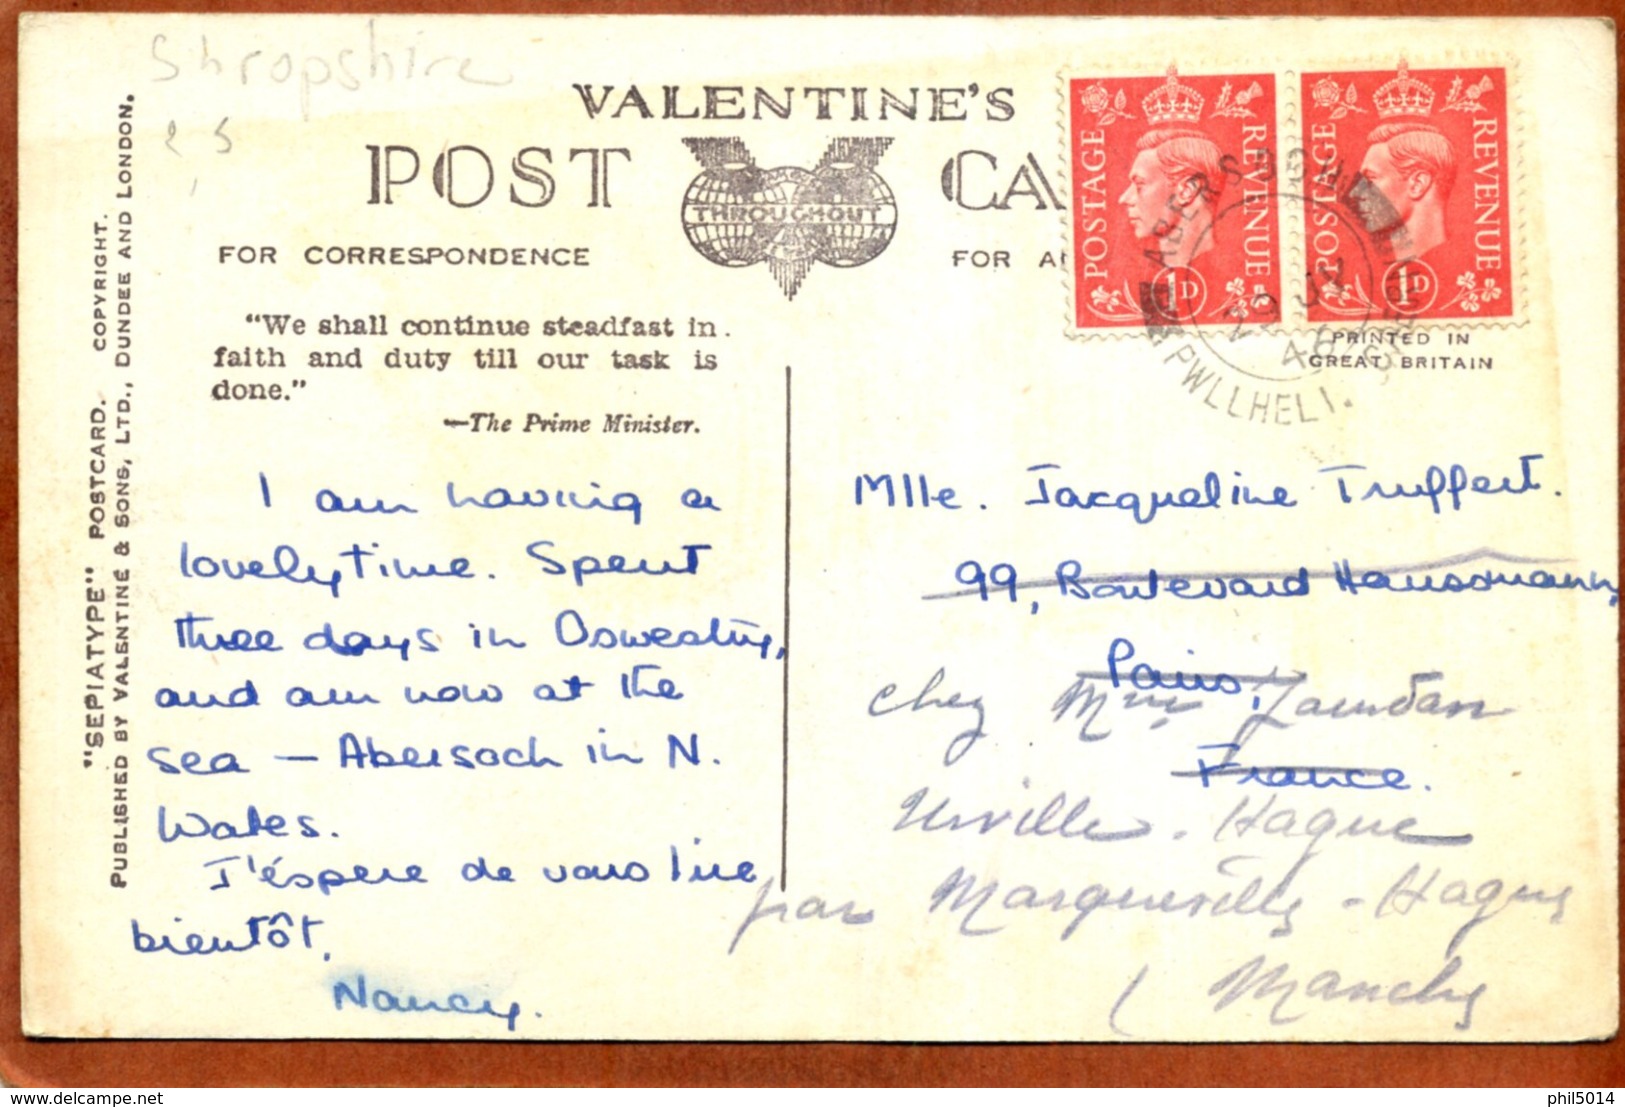 Shropshire
VALENTINE'S
POST CA
THROUGHOUT
FOR CORRESPONDENCE
FOR A
"We shall continue steadfast in
faith and duty till our task is
done."
—The Prime Minister.
"SEPIATYPE" POSTCARD. COPYRIGHT.
PUBLISHED BY VALENTINE & SONS, LTD., DUNDEE AND LONDON.
I am having a
lovely time. Spent
three days in Oswestry,
and am now at the
sea – Abersoch in N.
Wales.
J'éspere de vous lire
bientôt,
Nancy.
POSTAGE REVENUE
1D
POSTAGE REVENUE
1D
ABERSOCH
PWLLHELI.
PRINTED IN
GREAT BRITAIN
Mlle. Jacqueline Truffert.
99, Boulevard Haussmann,
Paris,
chez Mme Jourdan
France.
Urville-Hague
par
Hague
Manche
website: delcampe.net
phil5014